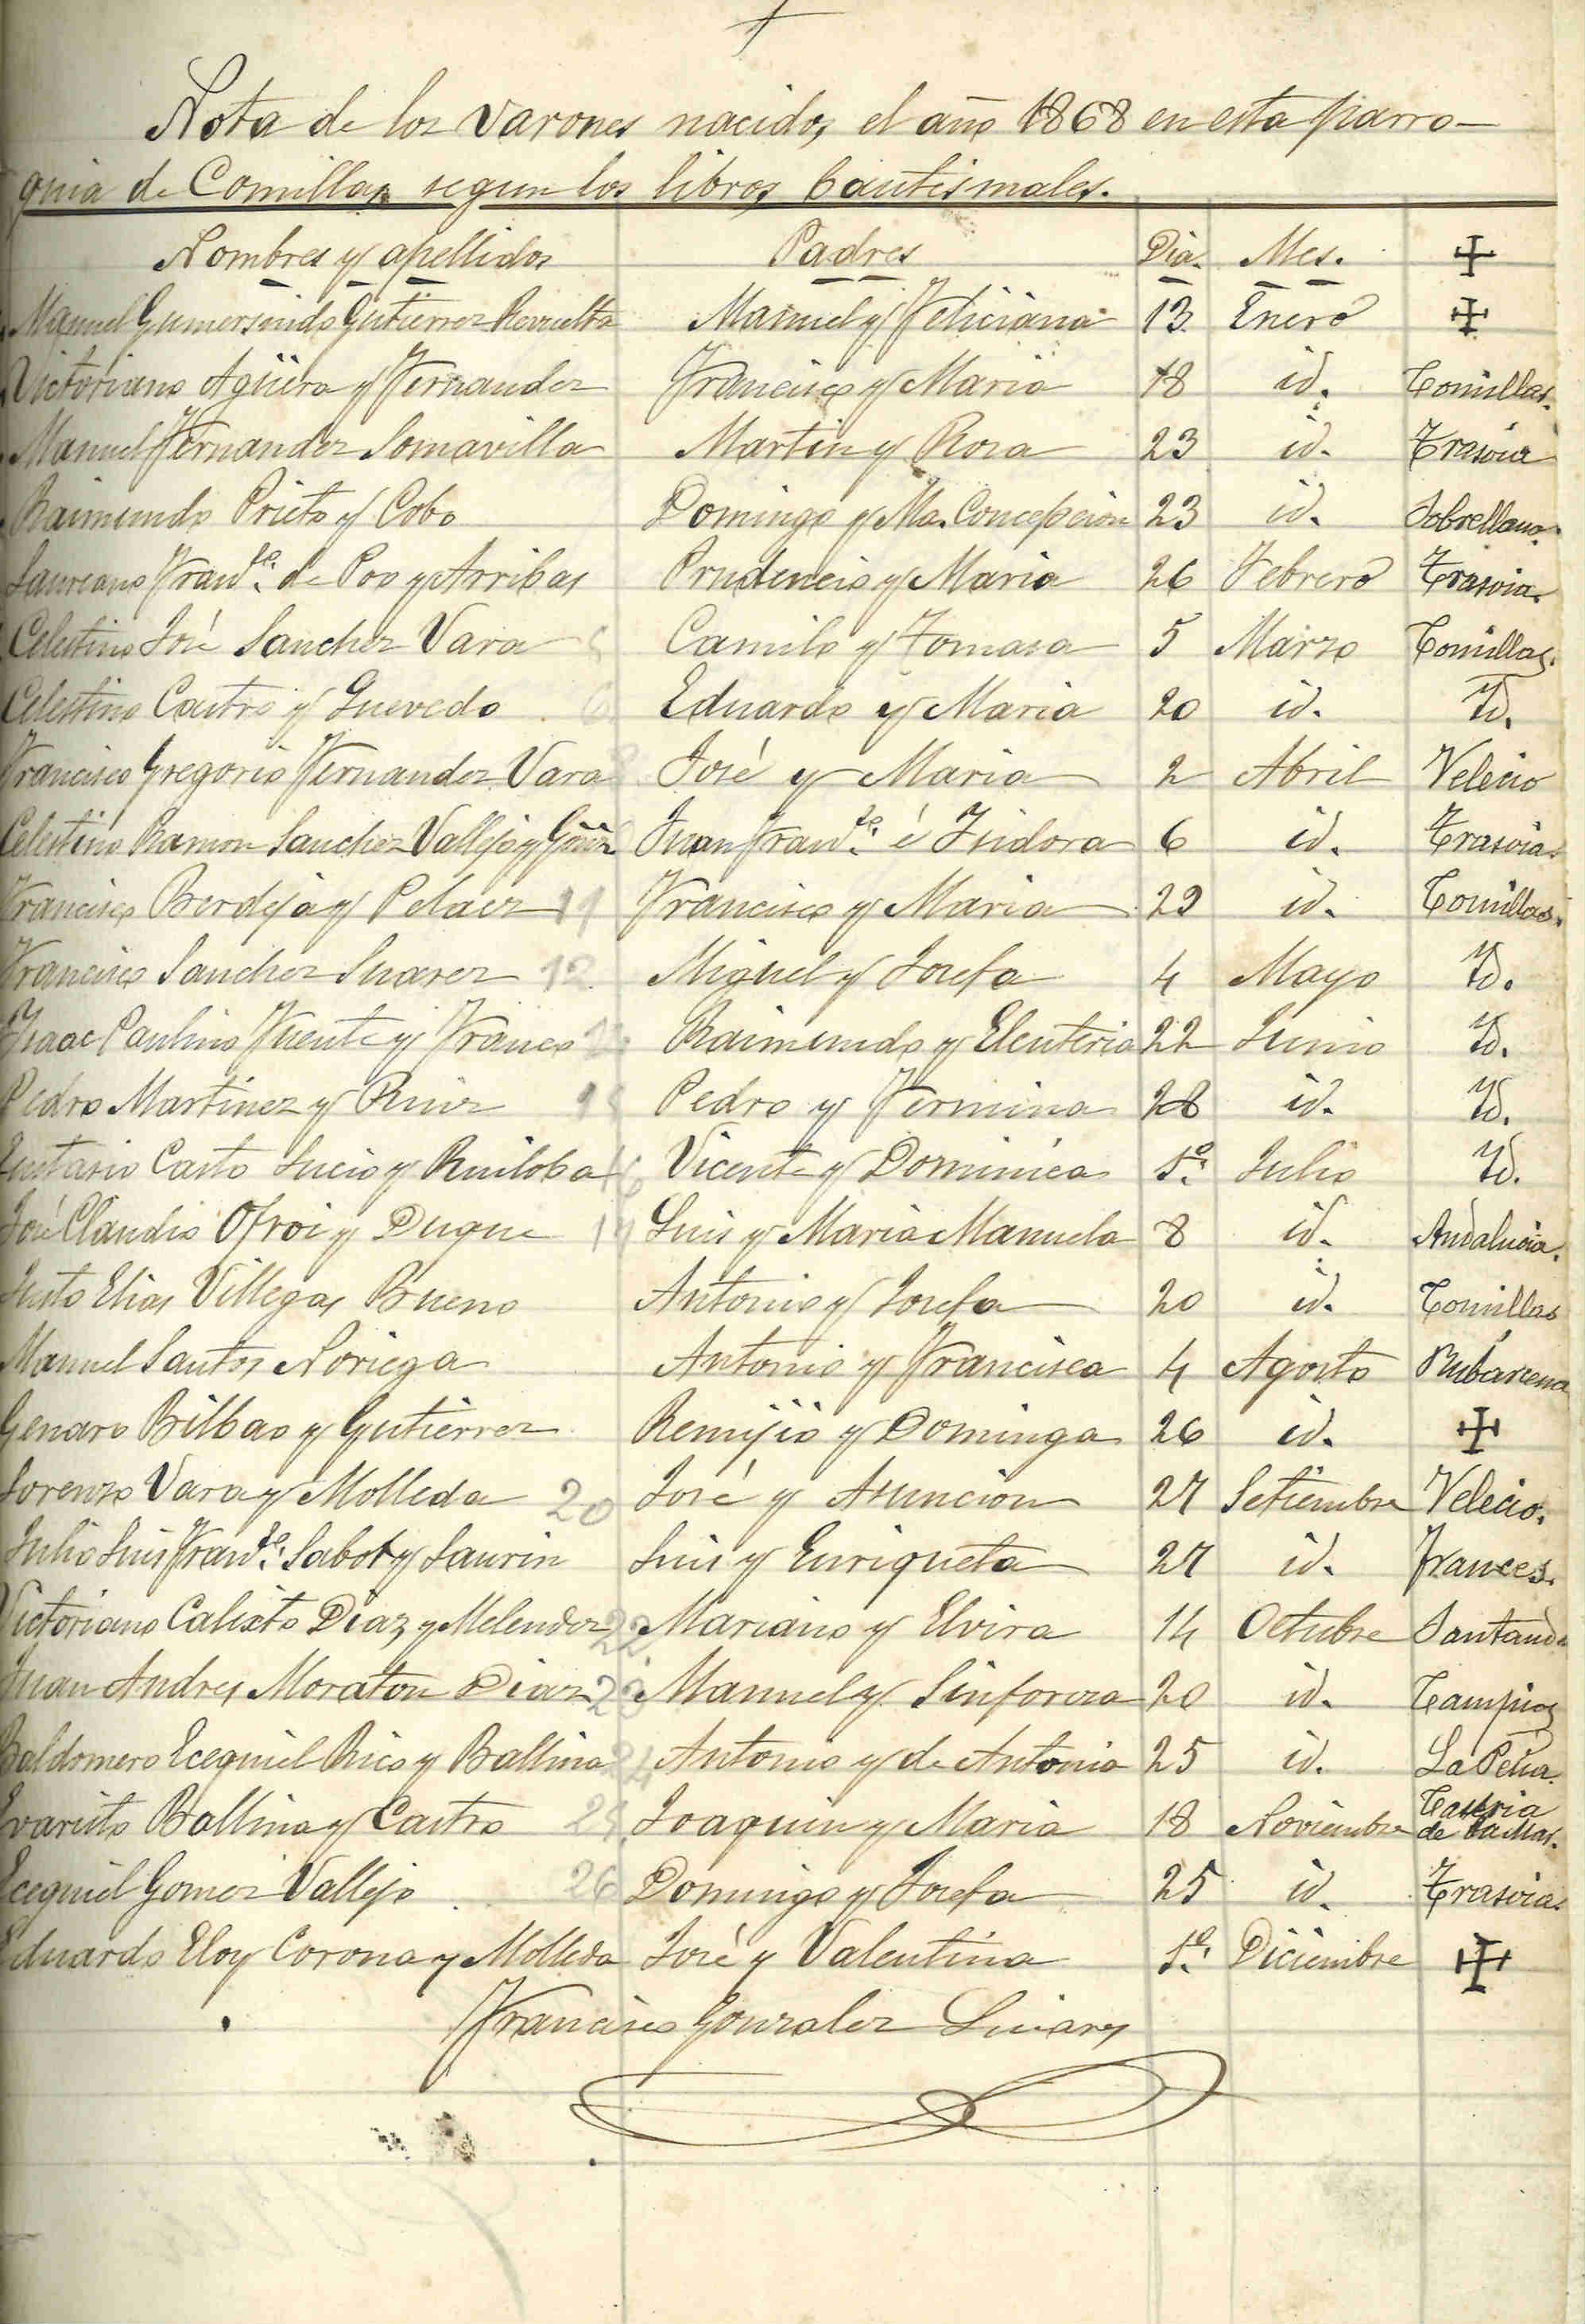 Nota de los Varones nacidos el año 1868 en esta parro-
quia de Comillas segun los libros bautismales.
Nombres y apellidos Padres Dia. Mes. ✠
Manuel Gumersindo Gutierrez Revuelta Manuel y Feliciana 13 Enero ✠
Victoriano Agüera y Fernandez Francisco y Maria 18 id. Comillas.
Manuel Fernandez Somavilla Martin y Rosa 23 id. Trasvia
Raimundo Prieto y Cobo Domingo y Ma. Concepcion 23 id. Sobrellano.
Laureano Franco. de Poo y Arribas Prudencio y Maria 26 Febrero Trasvia.
Celestino José Sanchez Vara Camilo y Tomasa 5 Marzo Comillas.
Celestino Castro y Quevedo Eduardo y Maria 20 id. Id.
Francisco Gregorio Fernandez Vara José y Maria 2 Abril Velecio
Celestino Ramon Sanchez Vallejo y Juan Franco. é Isidora 6 id. Trasvia
Francisco Berdeja y Pelaez 11 Francisco y Maria 29 id. Comillas.
Francisco Sanchez Suarez 12 Miguel y Josefa 4 Mayo Id.
Isaac Paulino Fuente y Franco Raimundo y Eleuteria 22 Junio Id.
Pedro Martinez y Ruiz Pedro y Fermina 28 id. Id.
Eustasio Casto Lucio y Ruiloba 16 Vicente y Dominica 1º. Julio Id.
José Claudio Ofroi y Duque 17 Luis y Maria Manuela 8 id. Andalucia.
Justo Elias Villegas Bueno Antonio y Josefa 20 id. Comillas
Manuel Santos Noriega Antonio y Francisca 4 Agosto Rubárcena
Genaro Bilbao y Gutierrez Remijio y Dominga 26 id. ✠
Lorenzo Vara y Molleda 20 José y Asuncion 27 Setiembre Velecio.
Julio Luis Franco. Sabot y Laurin Luis y Enriqueta 27 id. frances.
Victoriano Calisto Diaz y Melendez 22 Mariano y Elvira 14 Octubre Santand
Juan Andres Moraton Diaz 23 Manuel y Sinforosa 20 id. Campios
Baldomero Ecequiel Rico y Ballina 24 Antonio y de Antonia 25 id. La Peña.
Evaristo Ballina y Castro 25 Joaquin y Maria 18 Noviembre Caseria
de la Mar.
Ecequiel Gomez Vallejo 26 Domingo y Josefa 25 id. Trasvia.
Eduardo Eloy Corona y Molleda José y Valentina 1º. Diciembre ✠
Francisco Gonzalez Linares